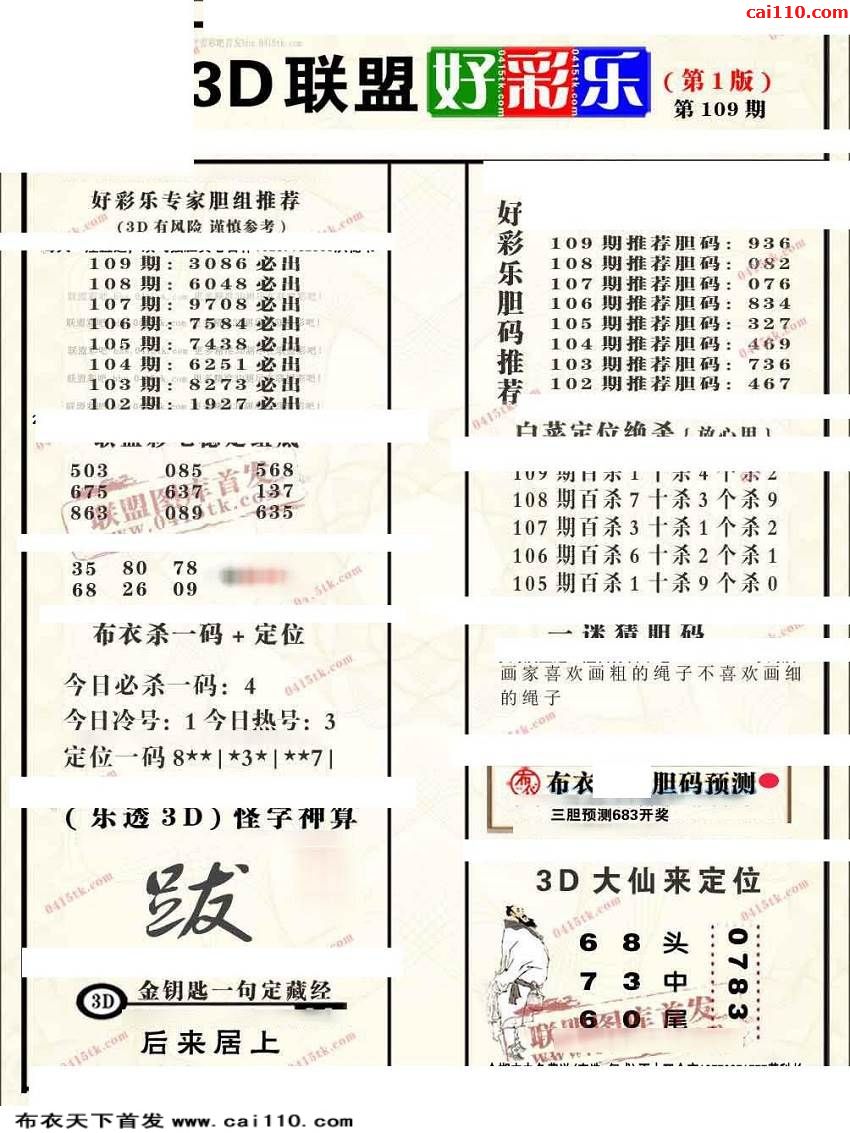 cai110.com
3D联盟 好彩乐 (第1版)
第109期
好彩乐专家胆组推荐
(3D有风险 谨慎参考)
109期: 3086必出
108期: 6048必出
107期: 9708必出
106期: 7584必出
105期: 7438必出
104期: 6251必出
103期: 8273必出
102期: 1927必出
503 085 568
675 637 137
863 089 635
联盟图库首发
www.0415tk.com
35 80 78
68 26 09
布衣杀一码+定位
今日必杀一码: 4
今日冷号: 1 今日热号: 3
定位一码8**|*3*|**7|
(乐透3D) 怪字神算
跋
3D 金钥匙一句定藏经
后来居上
好彩乐胆码推荐
109期推荐胆码: 936
108期推荐胆码: 082
107期推荐胆码: 076
106期推荐胆码: 834
105期推荐胆码: 327
104期推荐胆码: 469
103期推荐胆码: 736
102期推荐胆码: 467
白菜定位绝杀 (放心用)
109期百杀1十杀4个杀2
108期百杀7十杀3个杀9
107期百杀3十杀1个杀2
106期百杀6十杀2个杀1
105期百杀1十杀9个杀0
一迷猜胆码
画家喜欢画粗的绳子不喜欢画细
的绳子
布衣 胆码预测
三胆预测683开奖
3D大仙来定位
6 8 头
7 3 中
6 0 尾
0783
联盟图库首发
布衣天下首发 www.cai110.com